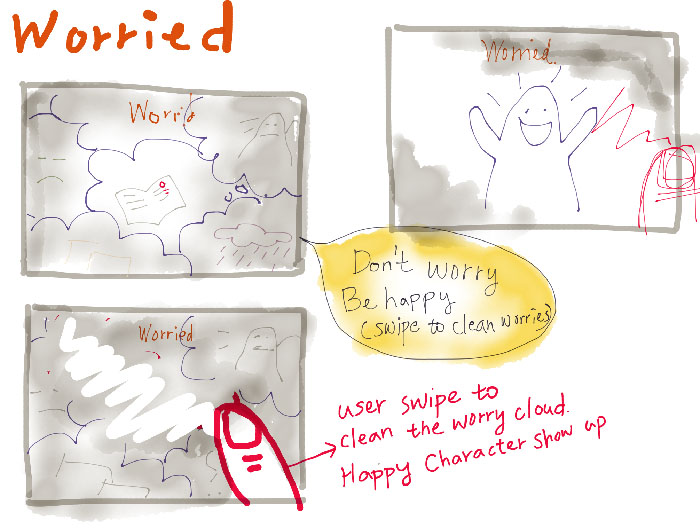 Worried
Worrid
Worried.
Don't worry
Be happy
(swipe to clean worries)
Worried
user swipe to
clean the worry cloud.
Happy Character show up